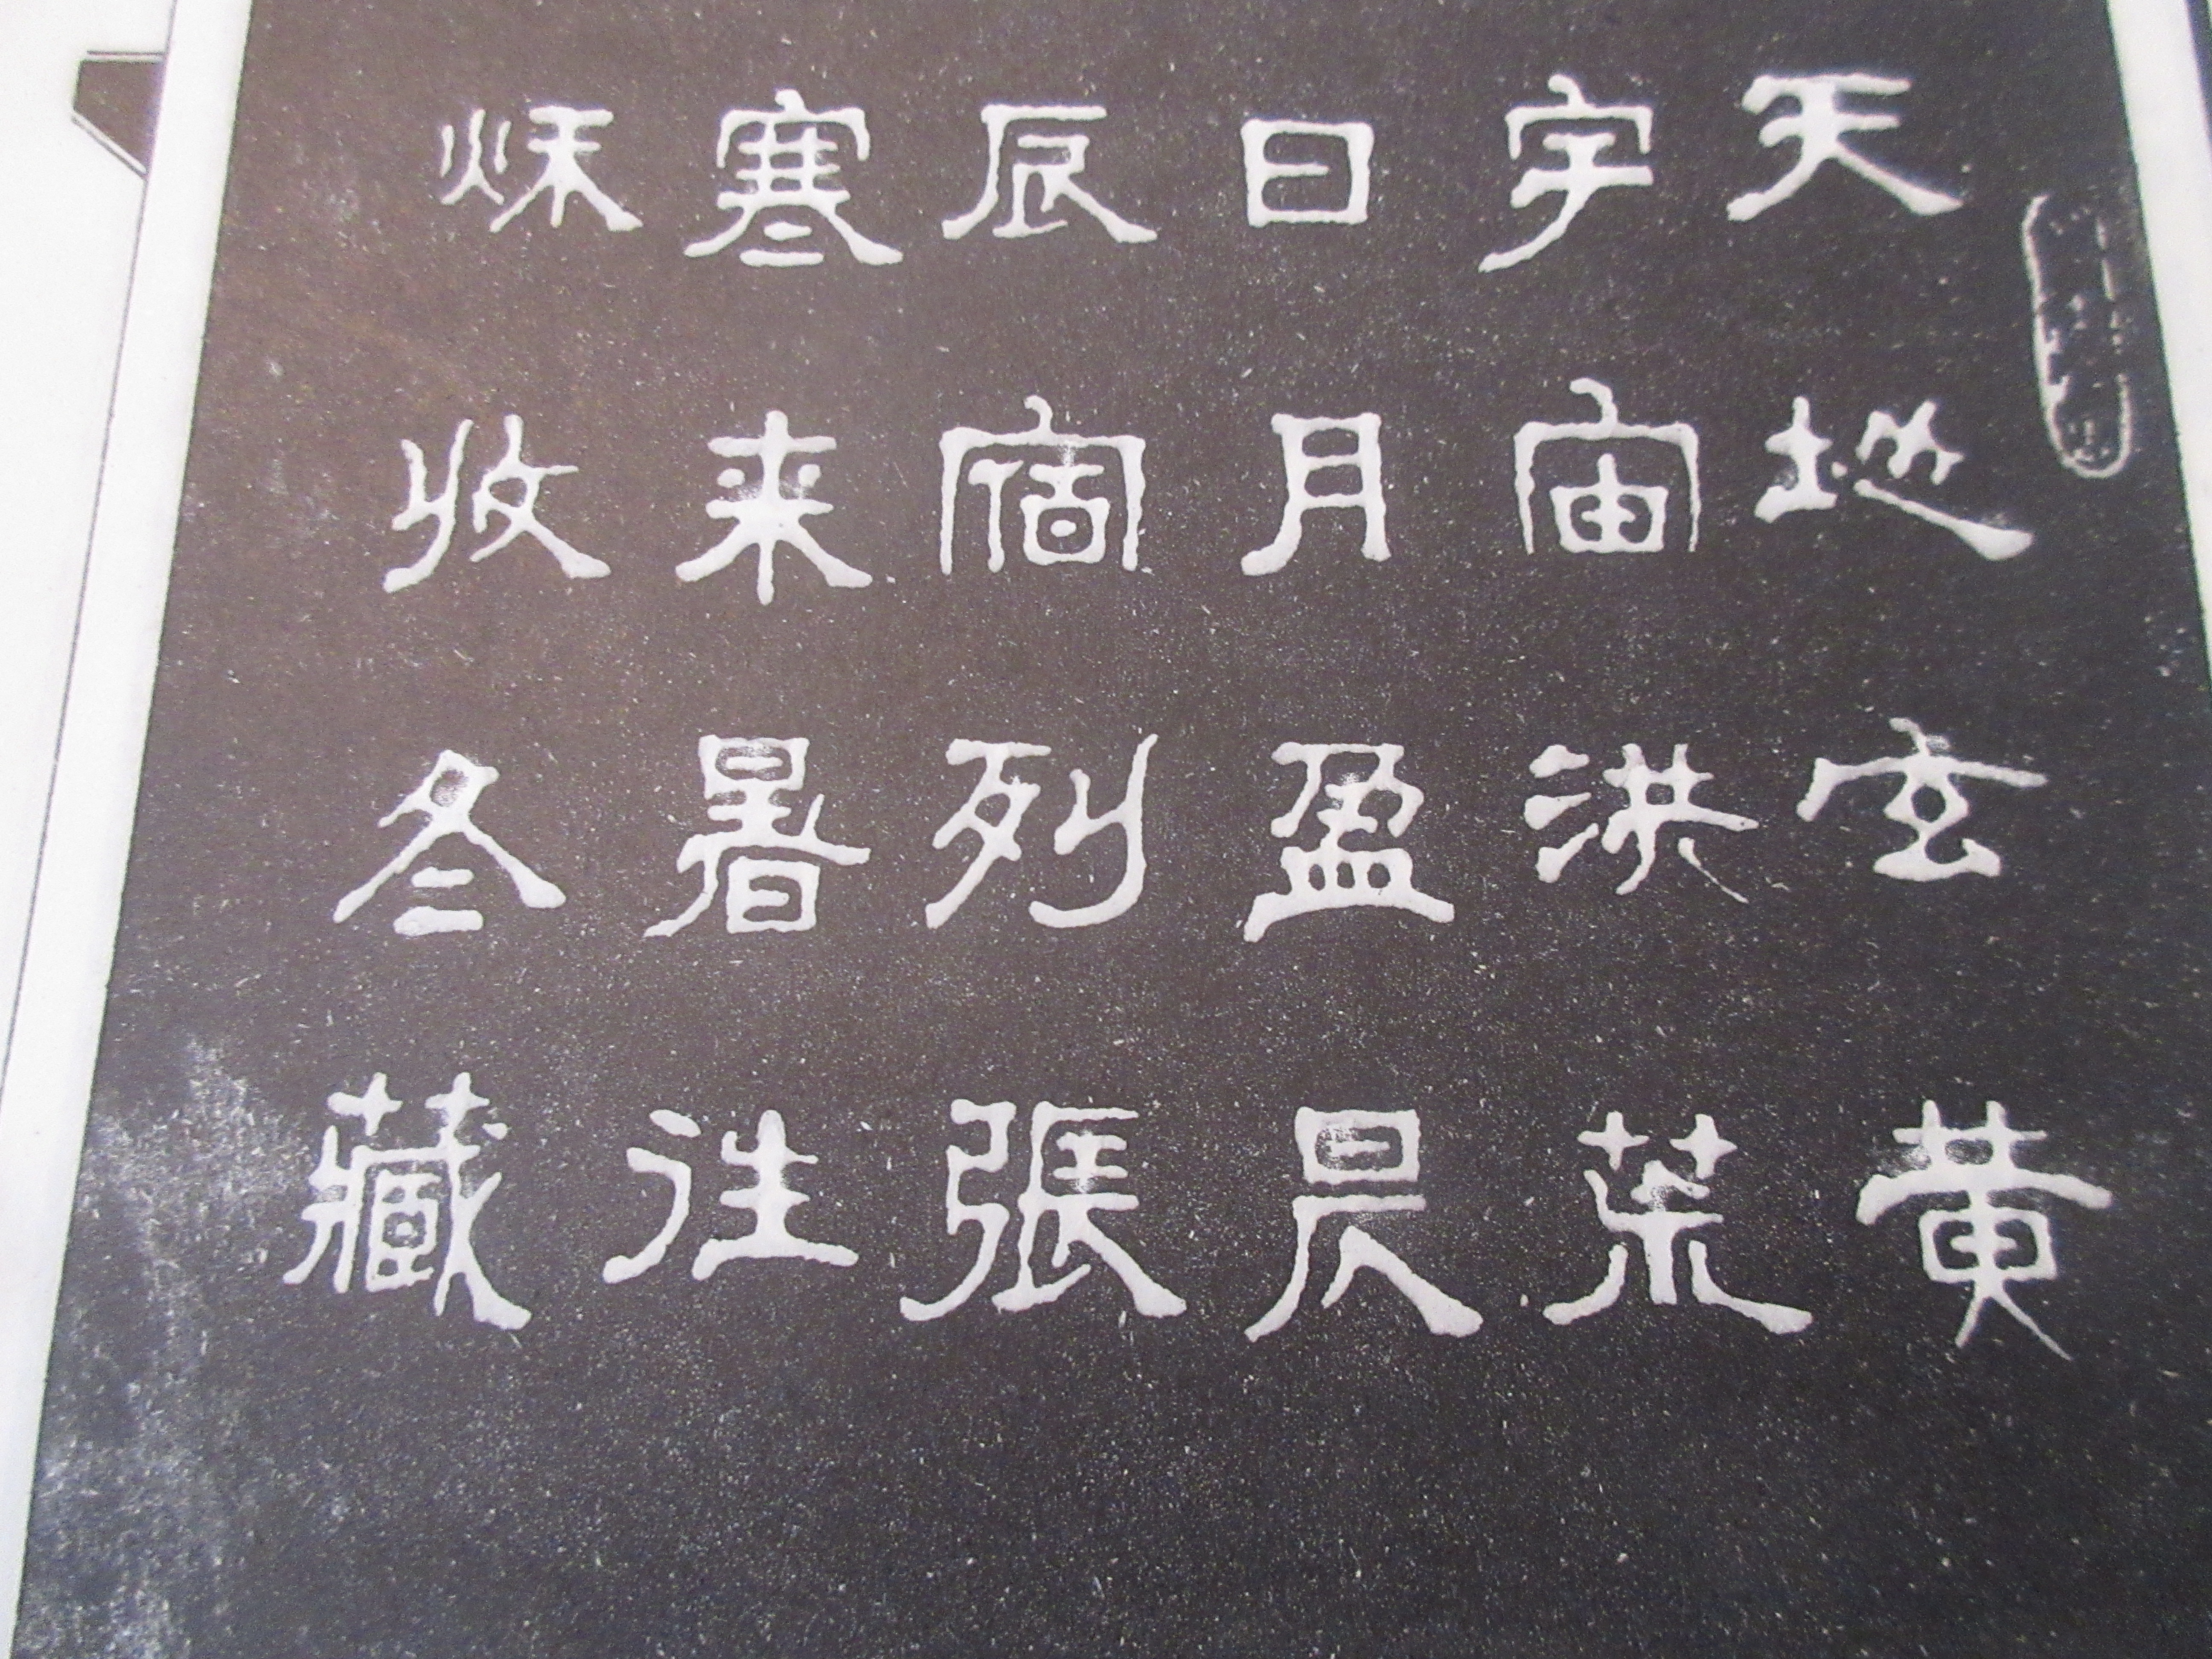 天地玄黄
宇宙洪荒
日月盈昃
辰宿列張
寒来暑往
秌收冬藏